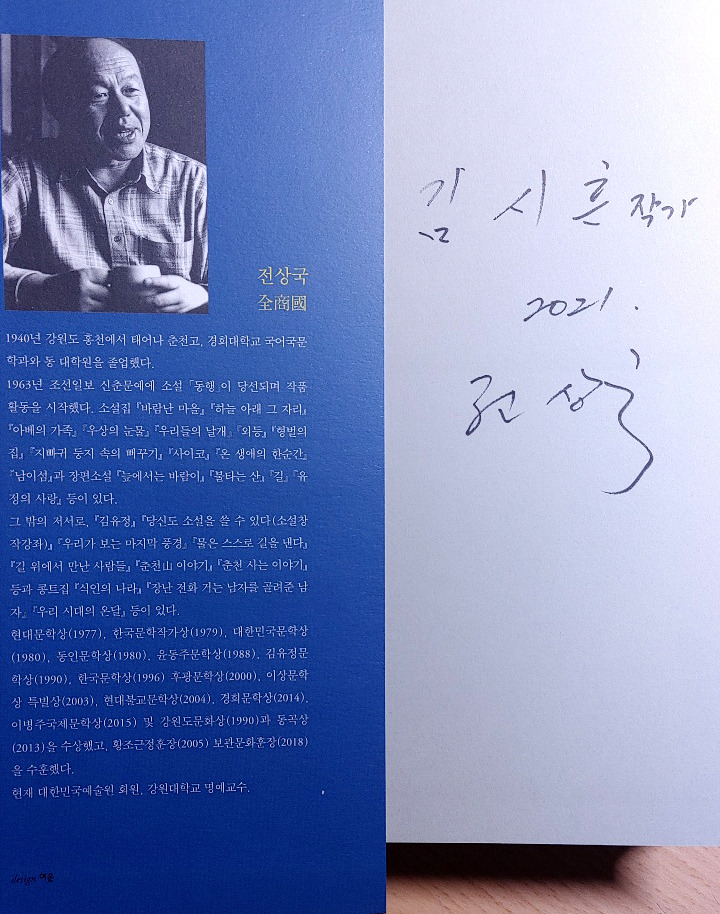 전상국
全商國
1940년 강원도 홍천에서 태어나 춘천고, 경희대학교 국어국문
학과와 동 대학원을 졸업했다.
1963년 조선일보 신춘문예에 소설 「동행」이 당선되며 작품
활동을 시작했다. 소설집 『바람난 마을』 『하늘 아래 그 자리』
『아베의 가족』 『우상의 눈물』 『우리들의 날개』 『외등』 『형벌의
집』 『지빠귀 둥지 속의 뻐꾸기』 『사이코』 『온 생애의 한순간』
『남이섬』과 장편소설 『늪에서는 바람이』 『불타는 산』 『길』 『유
정의 사랑』 등이 있다.
그 밖의 저서로, 『김유정』 『당신도 소설을 쓸 수 있다(소설창
작강좌)』 『우리가 보는 마지막 풍경』 『물은 스스로 길을 낸다』
『길 위에서 만난 사람들』 『춘천山 이야기』 『춘천 사는 이야기』
등과 콩트집 『식인의 나라』 『장난 전화 거는 남자를 골려준 남
자』 『우리 시대의 온달』 등이 있다.
현대문학상(1977), 한국문학작가상(1979), 대한민국문학상
(1980), 동인문학상(1980), 윤동주문학상(1988), 김유정문
학상(1990), 한국문학상(1996) 후광문학상(2000), 이상문학
상 특별상(2003), 현대불교문학상(2004), 경희문학상(2014),
이병주국제문학상(2015) 및 강원도문화상(1990)과 동곡상
(2013)을 수상했고, 황조근정훈장(2005) 보관문화훈장(2018)
을 수훈했다.
현재 대한민국예술원 회원, 강원대학교 명예교수.
design 여운
김 시 흔 작가
2021.
전 상국